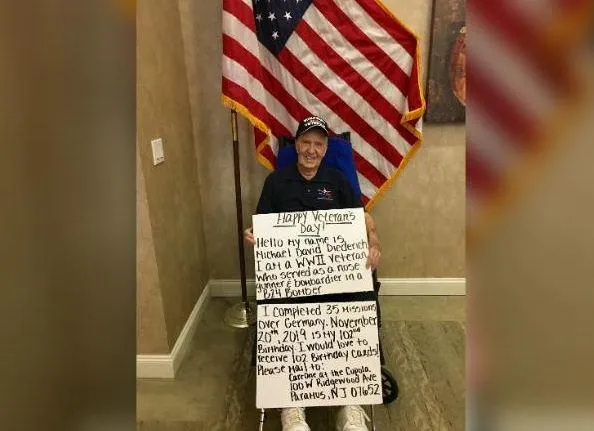 Happy Veteran's
Day!
Hello my name is
Michael David Diederich
I am a WWII veteran
who served as a nose
gunner & bombardier in a
B24 Bomber
I completed 35 missions
over Germany. November
20th, 2019 is my 102nd
Birthday. I would love to
receive 102 Birthday cards!
Please mail to:
CareOne at the Cupola
100 W Ridgewood Ave
Paramus, NJ 07652